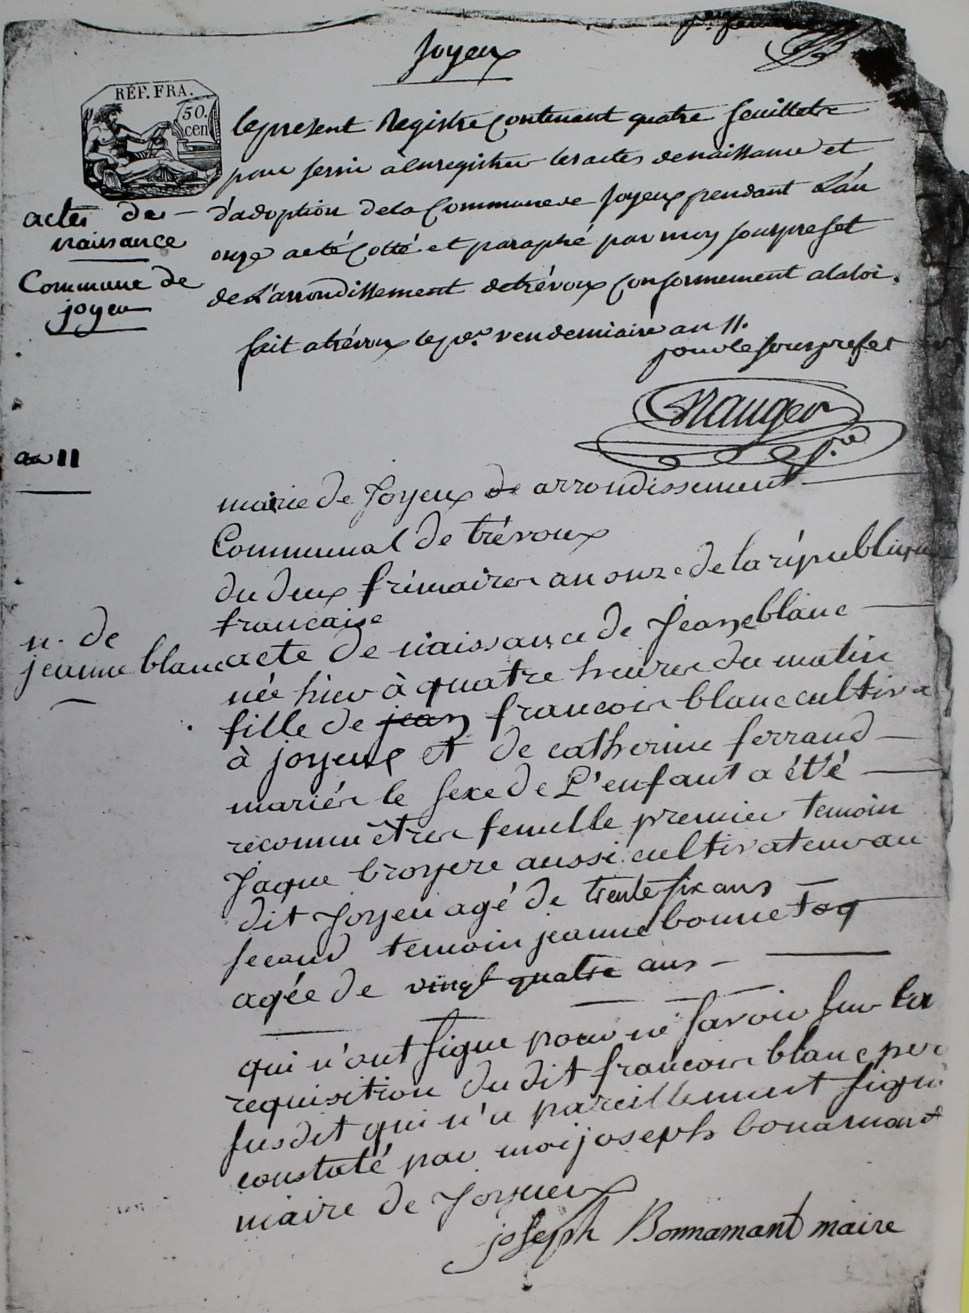 Joyeux
RÉP. FRA.
50.
cen
le present Registre Contenant quatre feuillets
pour servir a Enregistrer les actes de naissance et
d'adoption de la Commune de Joyeux pendant L'an
onze a eté Cotté et paraphé par moy souspréfet
de L'arrondissement de trévoux Conformement a la loi.
fait a trévoux le per. vendemiaire an 11.
pour le souspréfet
actes de
naissance
Commune de
joyeu
an 11
mairie de Joyeux de arrondissement
Communal de trévoux
du deux frimaire an onze de la république
francaise
n. de
jeanne blanc
acte de naissance de Jeanne blanc
née hier à quatre heures du matin
fille de jean francois blanc cultiva
à joyeux et de catherine ferrand
mariés le sexe de L'enfant a été
reconnu être femelle premier temoin
Jaque broyere aussi cultivateur au
dit Joyeu agé de trente six ans
second temoin jeanne bonnet
agée de vingt quatre ans
qui n'ont signe pour ne savoir sur la
requisition du dit francois blanc per
susdit qui n'a pareillement signé
constaté par moi joseph bonamant
maire de Joyeux
joseph Bonnamant maire